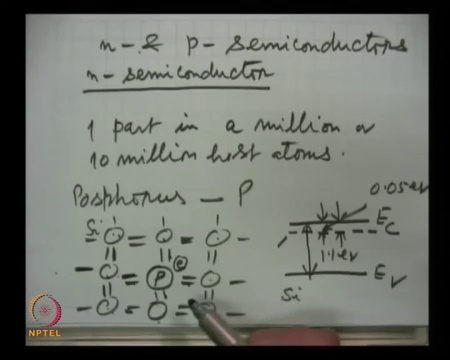 n- & p- semiconductors
n- semiconductor
1 part in a million or
10 million host atoms.
Posphorus — P
0.05 eV
Si
E_C
P
e
1.1 eV
E_V
Si
NPTEL